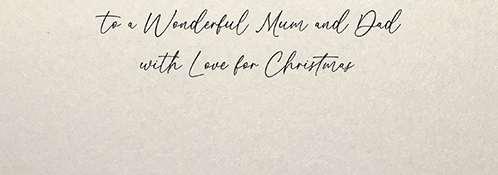 to a Wonderful Mum and Dad
with Love for Christmas